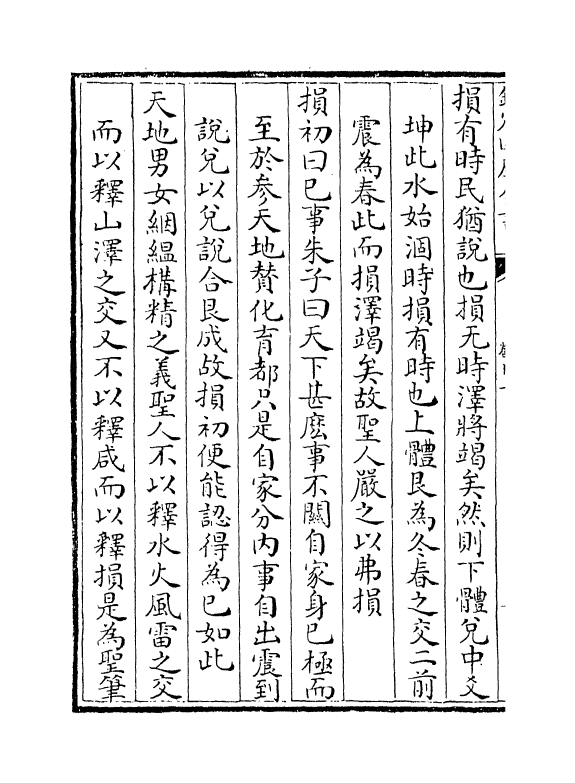 損有時民猶說也損无時澤將竭矣然則下體兌中爻
坤此水始涸時損有時也上體艮為冬春之交二前
震為春此而損澤竭矣故聖人嚴之以弗損
損初曰已事朱子曰天下甚麽事不關自家身已極而
至於參天地賛化育都只是自家分内事自出震到
說兌以兌說合艮成故損初便能認得為已如此
天地男女絪緼構精之義聖人不以釋水火風雷之交
而以釋山澤之交又不以釋咸而以釋損是為聖筆